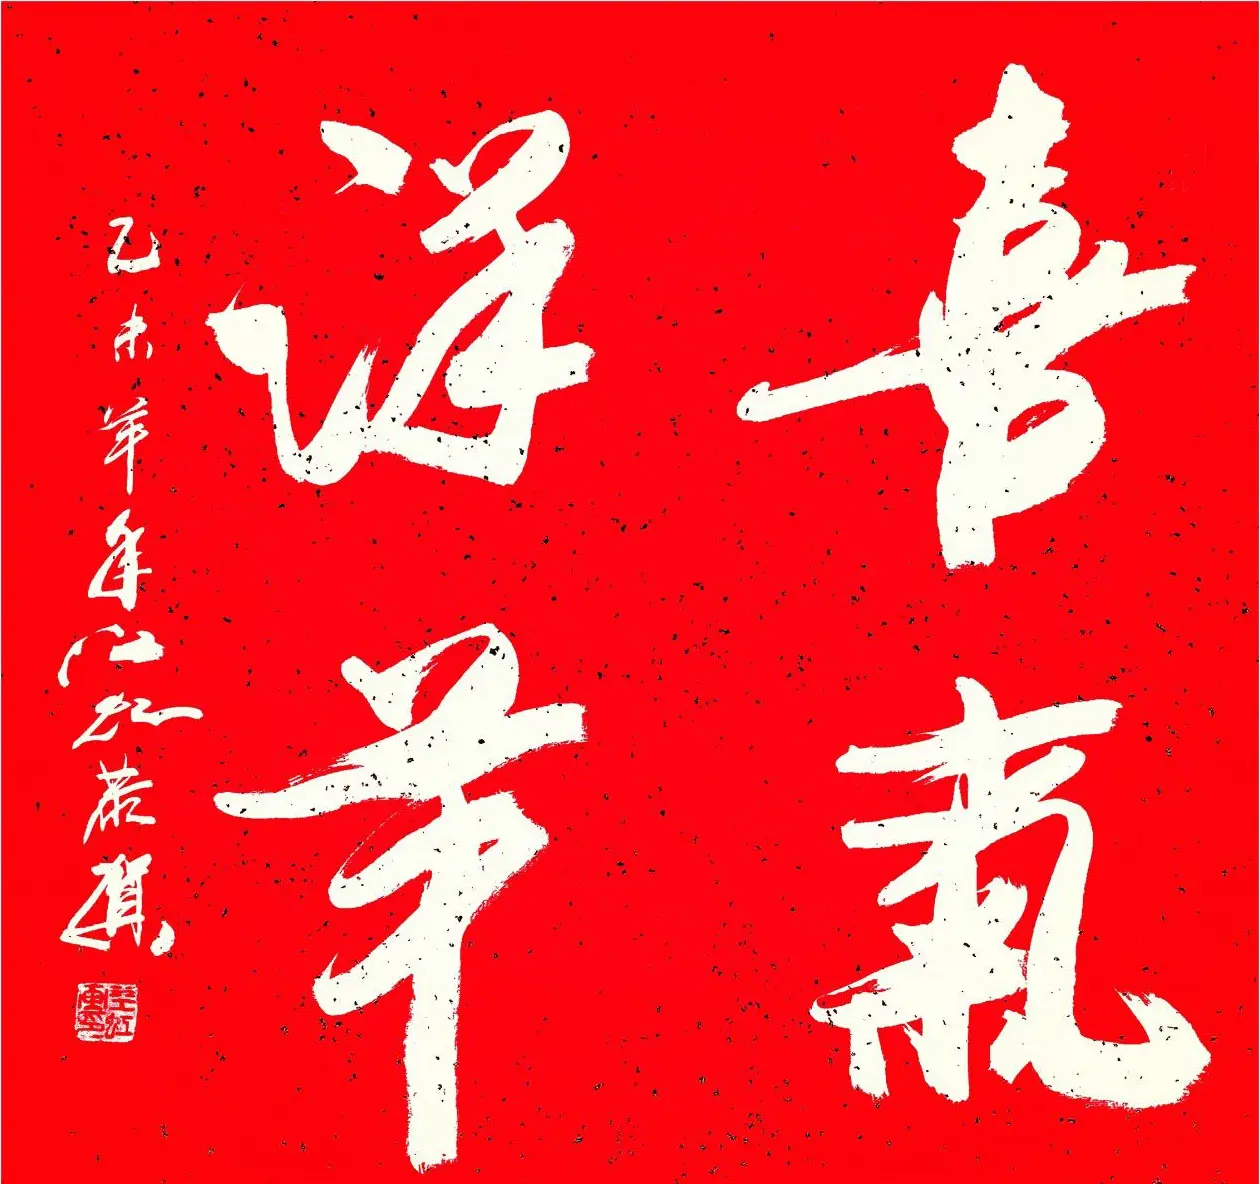 喜氣
洋羊
乙未羊年恭賀